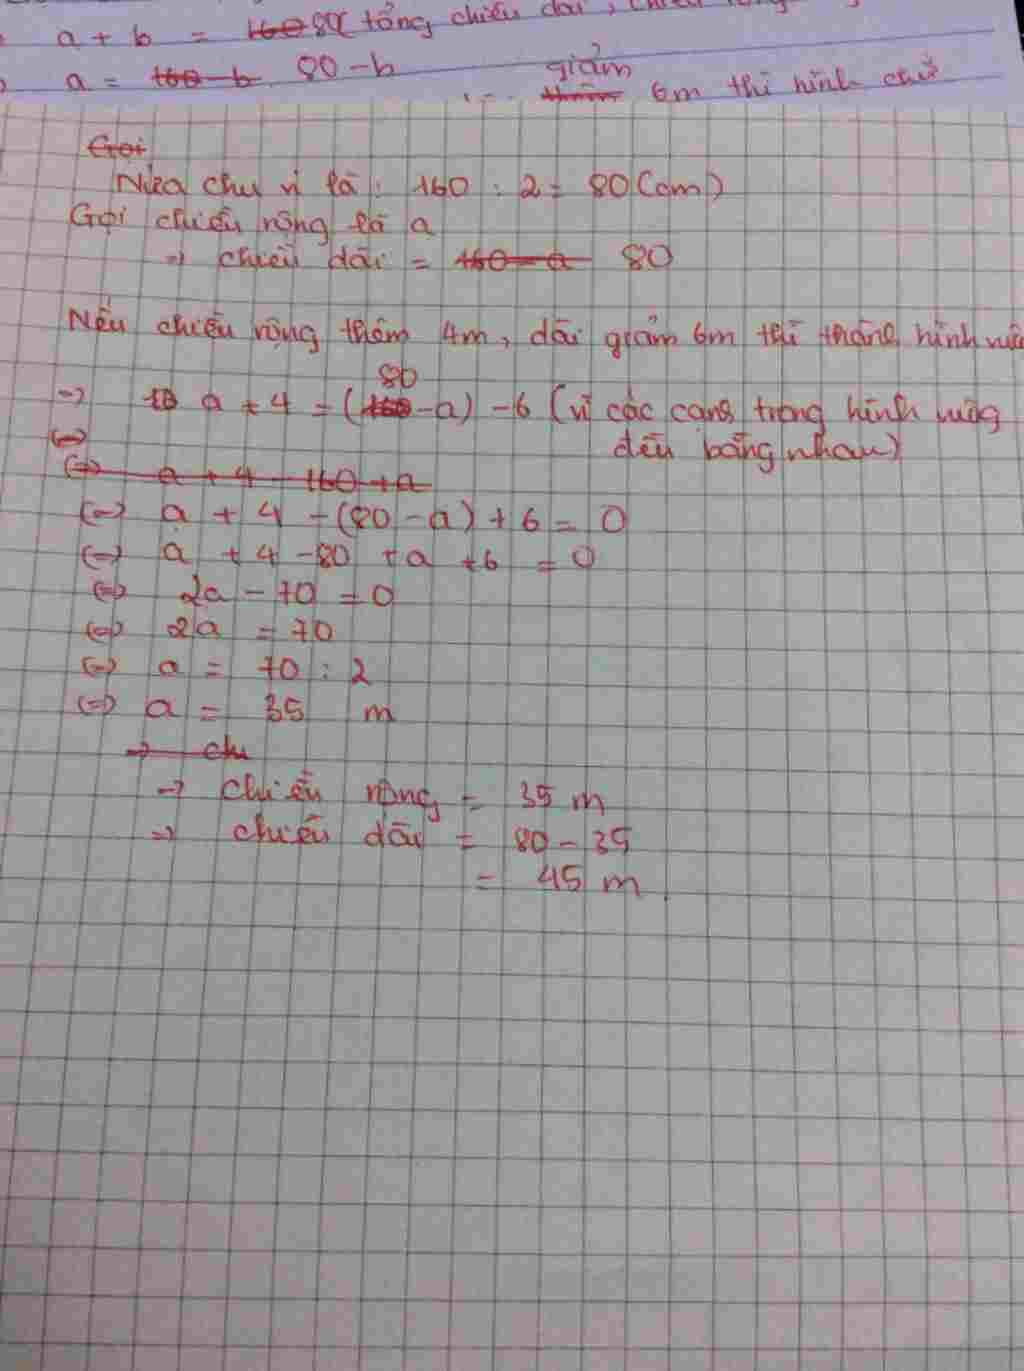 a + b = 160 80 (tổng chiều dài,
a = 160 - b 80 - b
giảm
thêm 6m thì hình chữ
Gọi
Nửa chu vi là : 160 : 2 = 80 (cm)
Gọi chiều rộng là a
=> chiều dài = 160 - a 80
Nếu chiều rộng thêm 4m, dài giảm 6m thì thành hình
80
=> a + 4 = (160 - a) - 6 (vì các cạnh trong hình vuông
<=> đều bằng nhau)
<=> a + 4 - 160 + a
<=> a + 4 - (80 - a) + 6 = 0
<=> a + 4 - 80 + a + 6 = 0
<=> 2a - 70 = 0
<=> 2a = 70
<=> a = 70 : 2
<=> a = 35 m
=> chu
=> chiều rộng = 35 m
=> chiều dài = 80 - 35
= 45 m